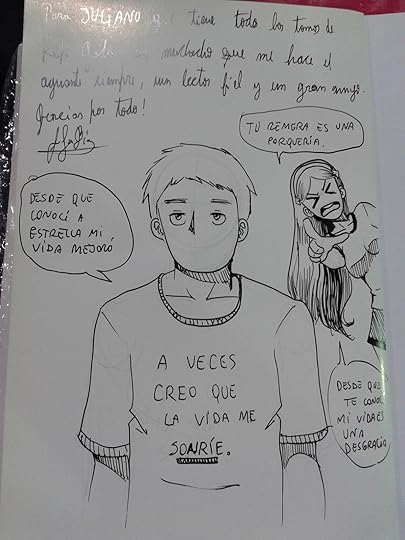 Para JULIANO que tiene todo los tomos de
muchacho que me hace el
aguante siempre, un lector fiel y un gran amigo.
Gracias por todo!
TU REMERA ES UNA
PORQUERÍA.
DESDE QUE
CONOCÍ A
ESTRELLA MI
VIDA MEJORÓ
A VECES
CREO QUE
LA VIDA ME
SONRÍE.
DESDE QUE
TE CONOCÍ
MI VIDA ES
UNA
DESGRACIA